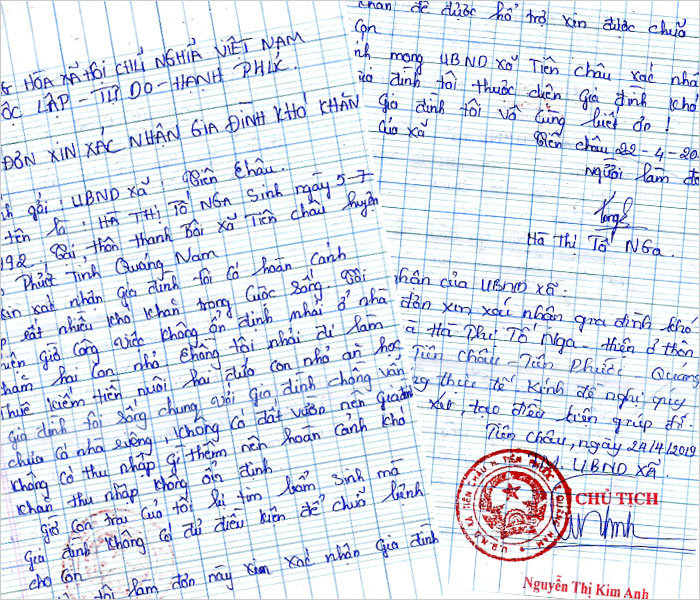 G HÒA XÃ HỘI CHỦ NGHĨA VIỆT NAM
ỐC LẬP - TỰ DO - HẠNH PHÚC.
ĐƠN XIN XÁC NHẬN GIA ĐÌNH KHÓ KHĂN
nh gởi : UBND xã : Tiên Châu.
tên là : HÀ THỊ TỐ NGA Sinh ngày 5-7
192. Tại thôn thanh Bôi xã Tiên châu huyện
Phước Tỉnh Quảng Nam
xin xác nhận gia đình tôi có hoàn cảnh
p rất nhiều khó khăn trong cuộc sống. Tôi
hiện giờ công việc không ổn định phải ở nhà
chăm hai con nhỏ chồng tôi phải đi làm
thuê kiếm tiền nuôi hai đứa con nhỏ ăn học
gia đình tôi sống chung với gia đình chồng vẫn
chưa có nhà riêng, không có đất vườn nên gia đình
không có thu nhập gì thêm nên hoàn cảnh khó
khăn thu nhập không ổn định
giờ con trai của tôi bị tim bẩm sinh mà
gia đình không có đủ điều kiện để chữa bệnh
cho con.
tôi làm đơn này xin xác nhận gia đình
khăn để được hổ trợ xin được chữa
con
nh mong UBND xã Tiên châu xác nhâ
gia đình tôi thuộc diện gia đình khó
Gia đình tôi vô cùng biết ơn !
của xã Tiên châu, 22-4-20
Người làm đơ
Hà Thị Tố Nga.
nhận của UBND xã :
đơn xin xác nhận gia đình khó
à Hà Thị Tố Nga - hiện ở thôn
Tiên Châu - Tiên Phước Quảng
g thực tế kính đề nghị quý
xét, tạo điều kiện giúp đỡ.
Tiên Châu, ngày 24/4/2019
UBND XÃ
CHỦ TỊCH
Nguyễn Thị Kim Anh